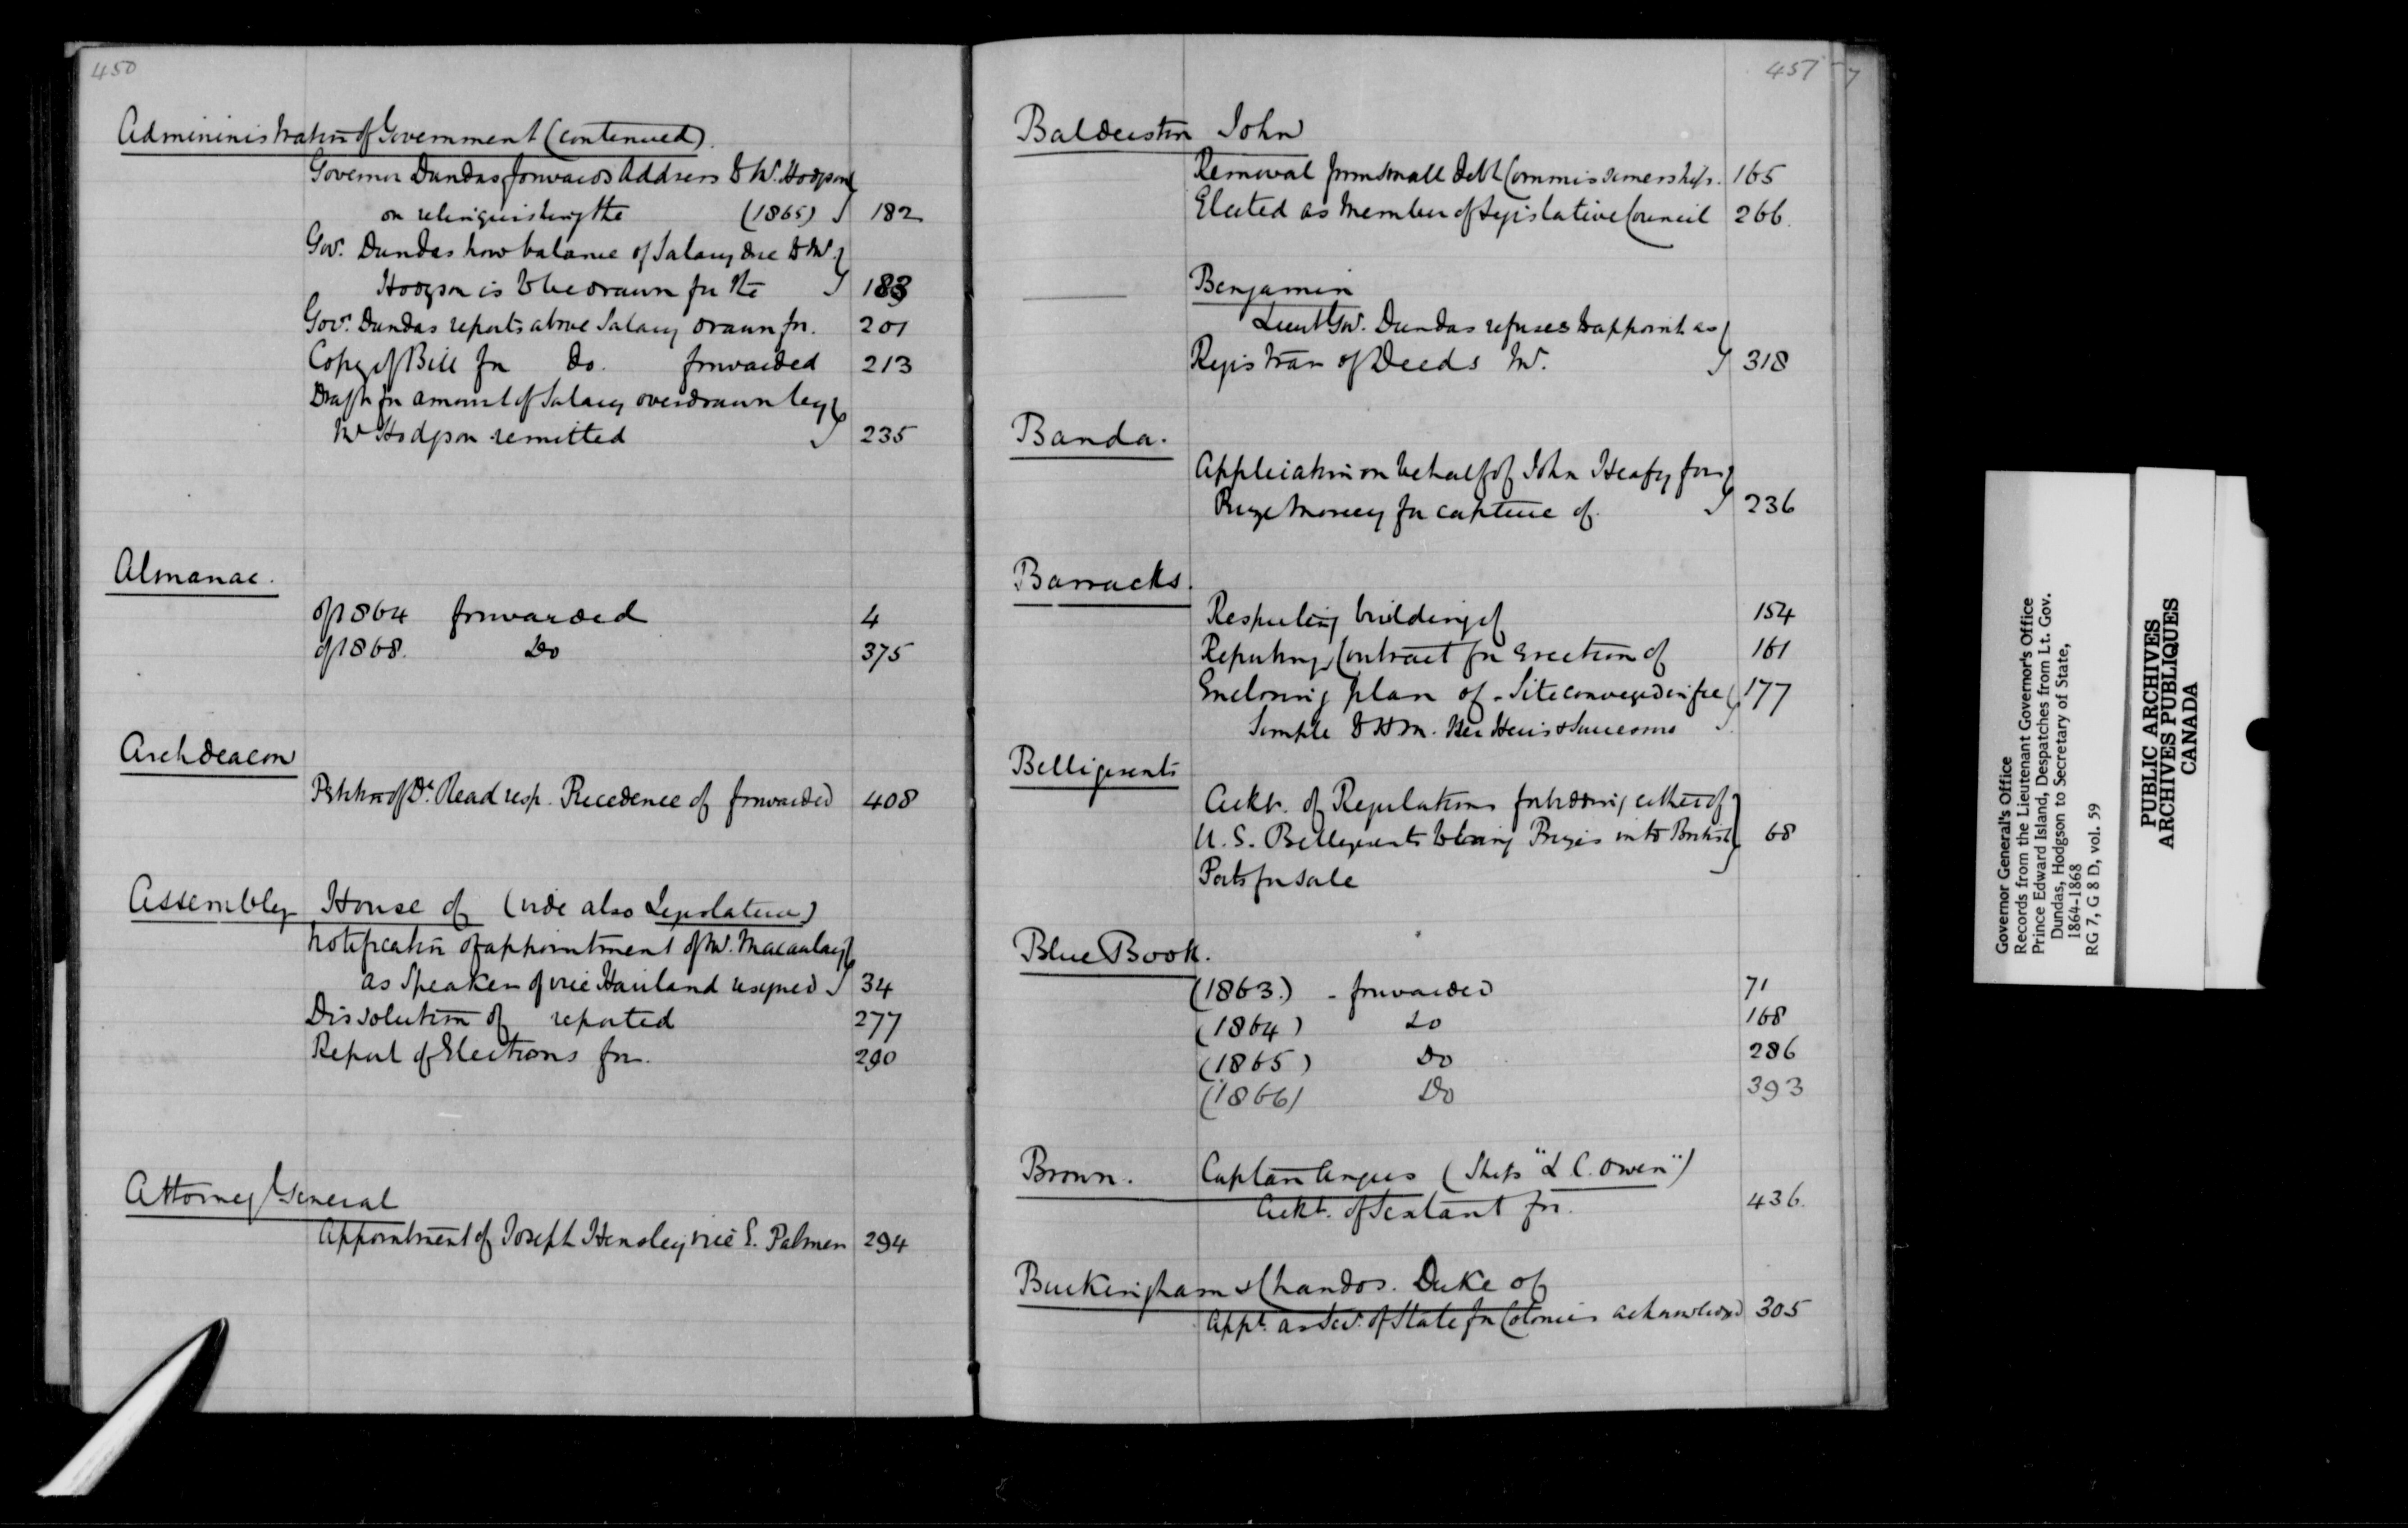 450
Admininistration of Government (continued).
Governor Dundas forwards Address to Mr. Hodgson
on relinquishing the (1865) 182
Govr. Dundas how balance of Salary due to Mr.
Hodgson is to be drawn for the 183
Govr. Dundas reports above Salary drawn for. 201
Copy of Bill for do. forwarded 213
Draft for amount of Salary overdrawn by
Mr Hodgson remitted 235
Almanac.
of 1864 forwarded 4
of 1868. Do 375
Archdeacon
Petition of Dr. Read resp. Precedence of forwarded 408
Assembly House of (vide also Legislature)
Notification of appointment of Mr. Macaulay
as Speaker of vice Haviland resigned 34
Dissolution of reported 277
Report of Elections for. 290
Attorney General
Appointment of Joseph Hensley vice E. Palmer 294
451
7
Balderston John
Removal from Small Debt Commissionership. 165
Elected as Member of Legislative Council 266.
Benjamin
Lieut Gov. Dundas refuses to appoint as
Registrar of Deeds Mr. 318
Banda.
Application on behalf of John Heafy for
Prize Money for capture of. 236
Barracks.
Respecting building of 154
Reporting Contract for Erection of 161
Enclosing plan of - Site conveyed in fee 177
Simple to H M. Her Heirs & Successors
Belligerents
Ackt. of Regulations forbidding either of
U. S. Belligerents to bring Prizes into British 68
Ports for sale
Blue Book.
(1863.) - forwarded 71
(1864) do 168
(1865) Do 286
(1866) Do 393
Brown. Captain Angus (Ship "L C. Owen")
Ackt. of Sextant for. 436.
Buckingham & Chandos. Duke of
Appt. as Secy. of State for Colonies acknowledged 305
Governor General's Office
Records from the Lieutenant Governor's Office
Prince Edward Island, Despatches from Lt. Gov.
Dundas, Hodgson to Secretary of State,
1864-1868
RG 7, G 8 D, vol. 59
PUBLIC ARCHIVES
ARCHIVES PUBLIQUES
CANADA